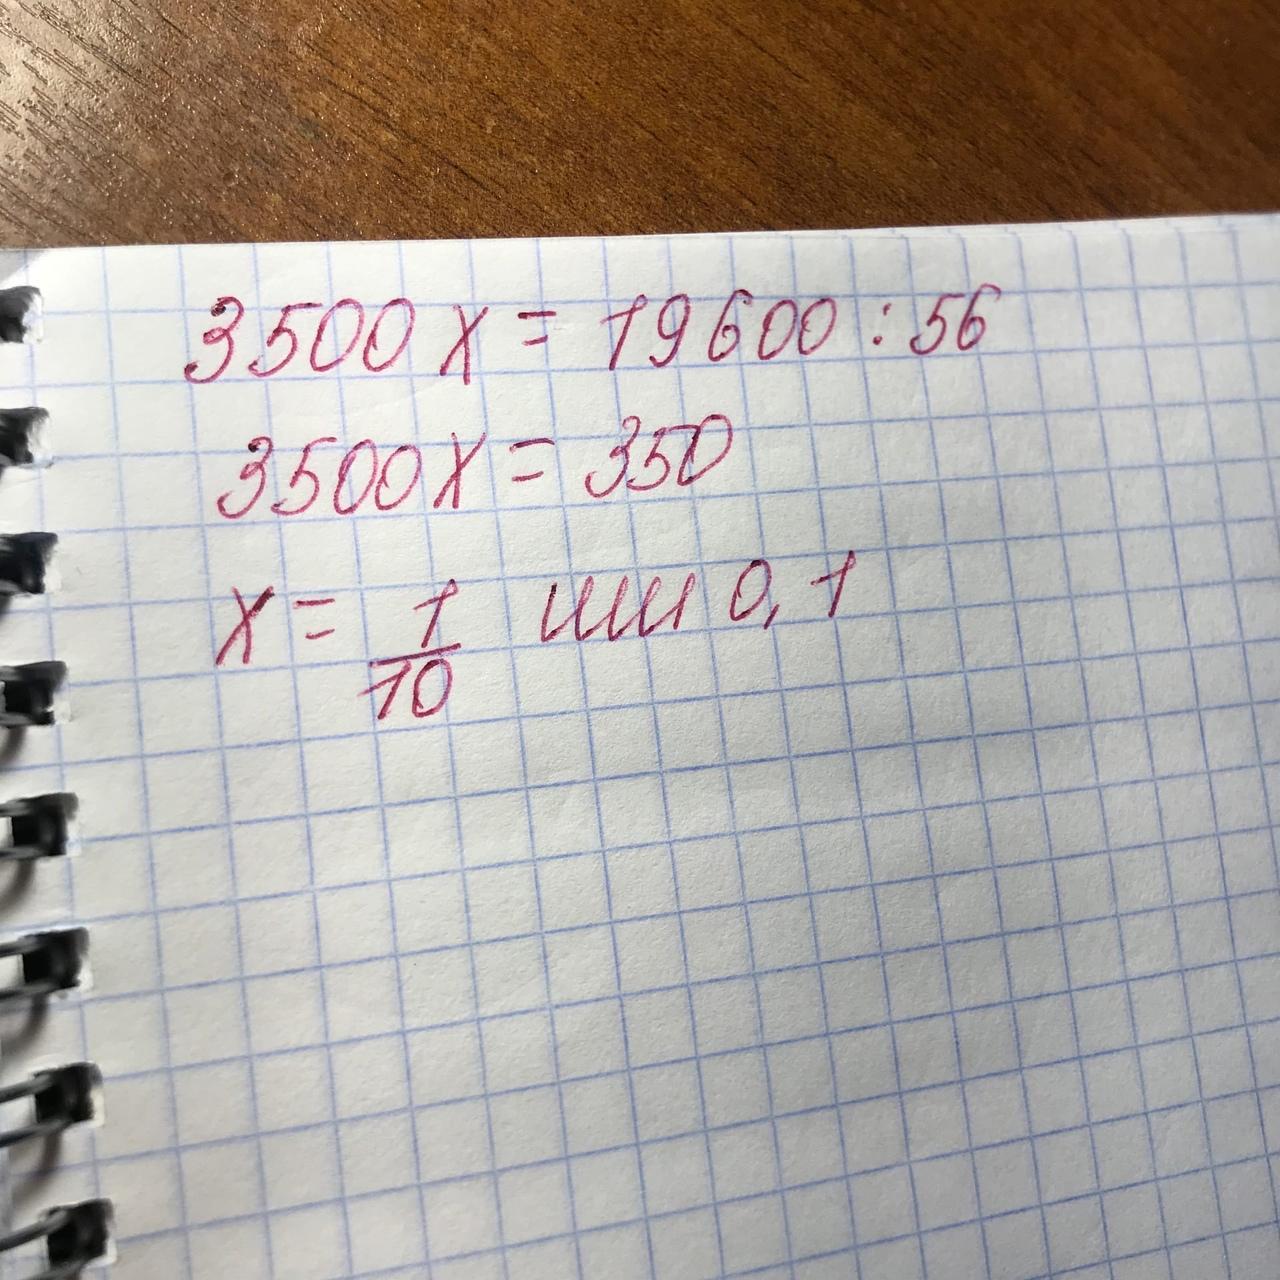 3500x = 19600 : 56
3500x = 350
x = 1/10 или 0,1